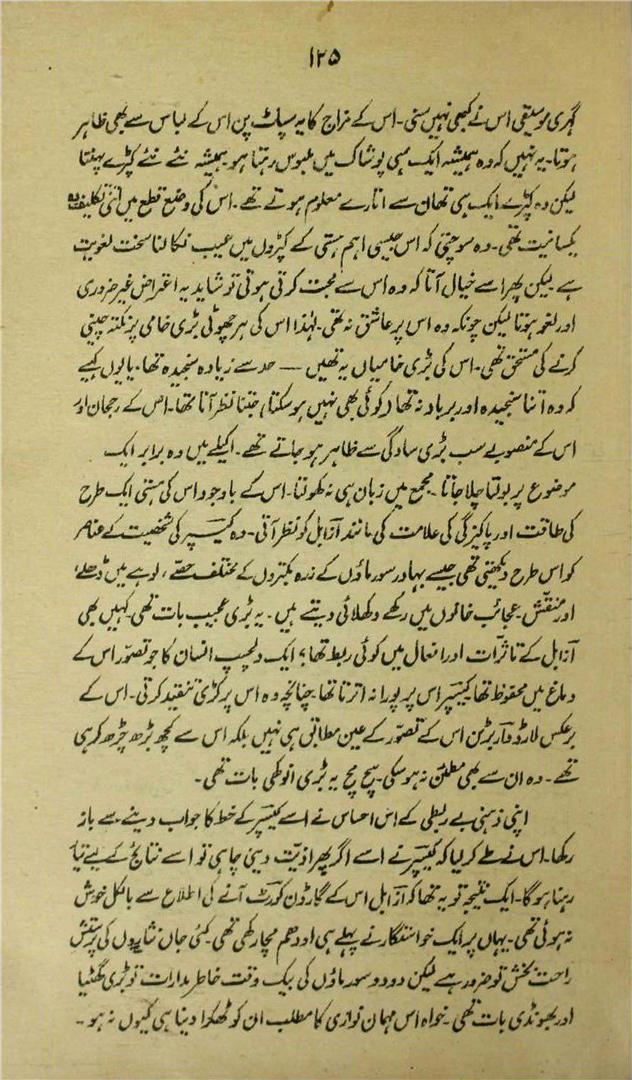 ۱۲۵
گہری موسیقی اس نے کبھی نہیں سنی۔ اس کے مزاج کا یہ سپاٹ پن اس کے لباس سے بھی ظاہر
ہوتا۔ یہ نہیں کہ وہ ہمیشہ ایک ہی پوشاک میں ملبوس رہتا ہو ہمیشہ نئے نئے کپڑے پہنتا
لیکن وہ کپڑے ایک ہی تھان سے اتارے معلوم ہوتے تھے۔ اس کی وضع قطع میں اتنی تکلیف دہ
یکسانیت تھی۔ وہ سوچتی کہ اس جیسی اہم ہستی کے کپڑوں میں عیب نکالنا سخت لغویت
ہے لیکن پھر اسے خیال آتا کہ وہ اس سے محبت کرتی ہوتی تو شاید یہ اعتراض غیر ضروری
اور لغو ہوتا لیکن چونکہ وہ اس پر عاشق نہ تھی۔ لہٰذا اس کی ہر چھوٹی بڑی خامی پر نکتہ چینی
کرنے کی مستحق تھی۔ اس کی بڑی خامیاں یہ تھیں —— حد سے زیادہ سنجیدہ تھا۔ یا یوں کہیے
کہ وہ اتنا سنجیدہ اور بردبار نہ تھا (کوئی بھی نہیں ہو سکتا) جتنا نظر آتا تھا۔ اس کے رجحان اور
اس کے منصوبے سب بڑی سادگی سے ظاہر ہو جاتے تھے۔ اکیلے میں وہ برابر ایک
موضوع پر بولتا چلا جاتا۔ مجمع میں زبان ہی نہ کھولتا۔ اس کے باوجود اس کی ہستی ایک طرح
کی طاقت اور پاکیزگی کی علامت کی مانند آزابل کو نظر آتی۔ وہ کیسپر کی شخصیت کے عناصر
کو اس طرح دیکھتی تھی جیسے بہادر سورماؤں کے زرہ بکتروں کے مختلف حصے، لوہے میں ڈھلے،
اور منقش، عجائب خانوں میں رکھے دکھلائی دیتے ہیں۔ یہ بڑی عجیب بات تھی۔ کہیں بھی
آزابل کے تاثرات اور افعال میں کوئی ربط تھا؟ ایک دلچسپ انسان کا جو تصور اس کے
دماغ میں محفوظ تھا کیسپر اس پر پورا نہ اترتا تھا۔ چنانچہ وہ اس پر کڑی تنقید کرتی۔ اس کے
برعکس لارڈ واربرٹن اس کے تصور کے عین مطابق ہی نہیں بلکہ اس سے کچھ بڑھ چڑھ کر ہی
تھے۔ وہ ان سے بھی مطمئن نہ ہو سکی۔ سچ مچ یہ بڑی انوکھی بات تھی۔
اپنی ذہنی بے ربطی کے اس احساس نے اسے کیسپر کے خط کا جواب دینے سے باز
رکھا۔ اس نے طے کر لیا کہ کیسپر نے اسے اگر پھر اذیت دینی چاہی تو اسے نتائج کے لیے تیار
رہنا ہو گا۔ ایک نتیجہ تو یہ تھا کہ آزابل اس کے گارڈن کورٹ آنے کی اطلاع سے بالکل خوش
نہ ہوئی تھی۔ یہاں پر ایک خواستگار نے پہلے ہی اودھم مچا رکھی تھی۔ کئی جاں نثاروں کی پرستش
راحت بخش تو ضرور ہے لیکن دو دو سورماؤں کی بیک وقت خاطر مدارات تو بڑی گھٹیا
اور بھونڈی بات تھی۔ خواہ اس مہمان نوازی کا مطلب ان کو ٹھکرا دینا ہی کیوں نہ ہو۔